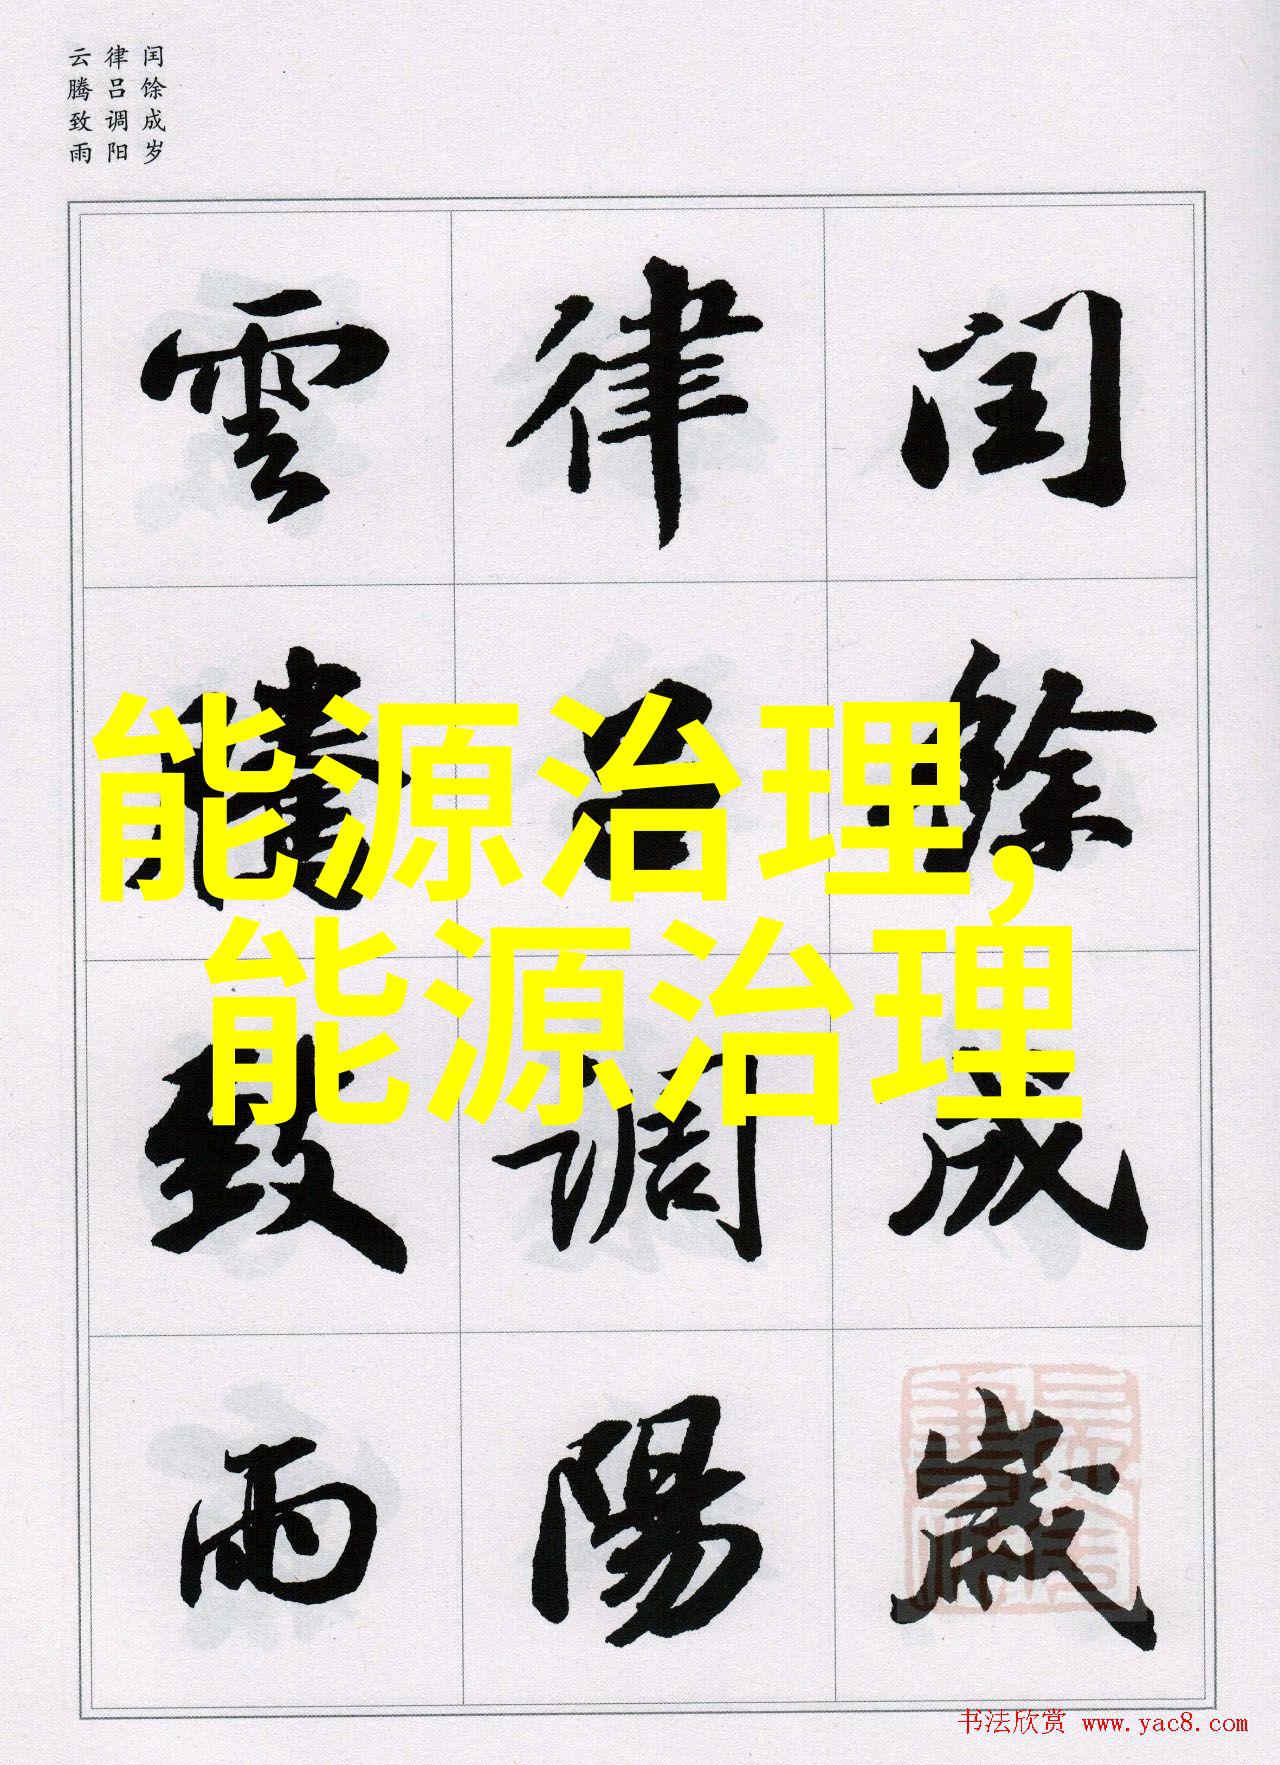 闰馀成岁
律吕调阳
云腾致雨
閏餘成歲
律吕調陽
雲騰致雨
能源治理,
能源治理
书法欣赏 www.yac8.com